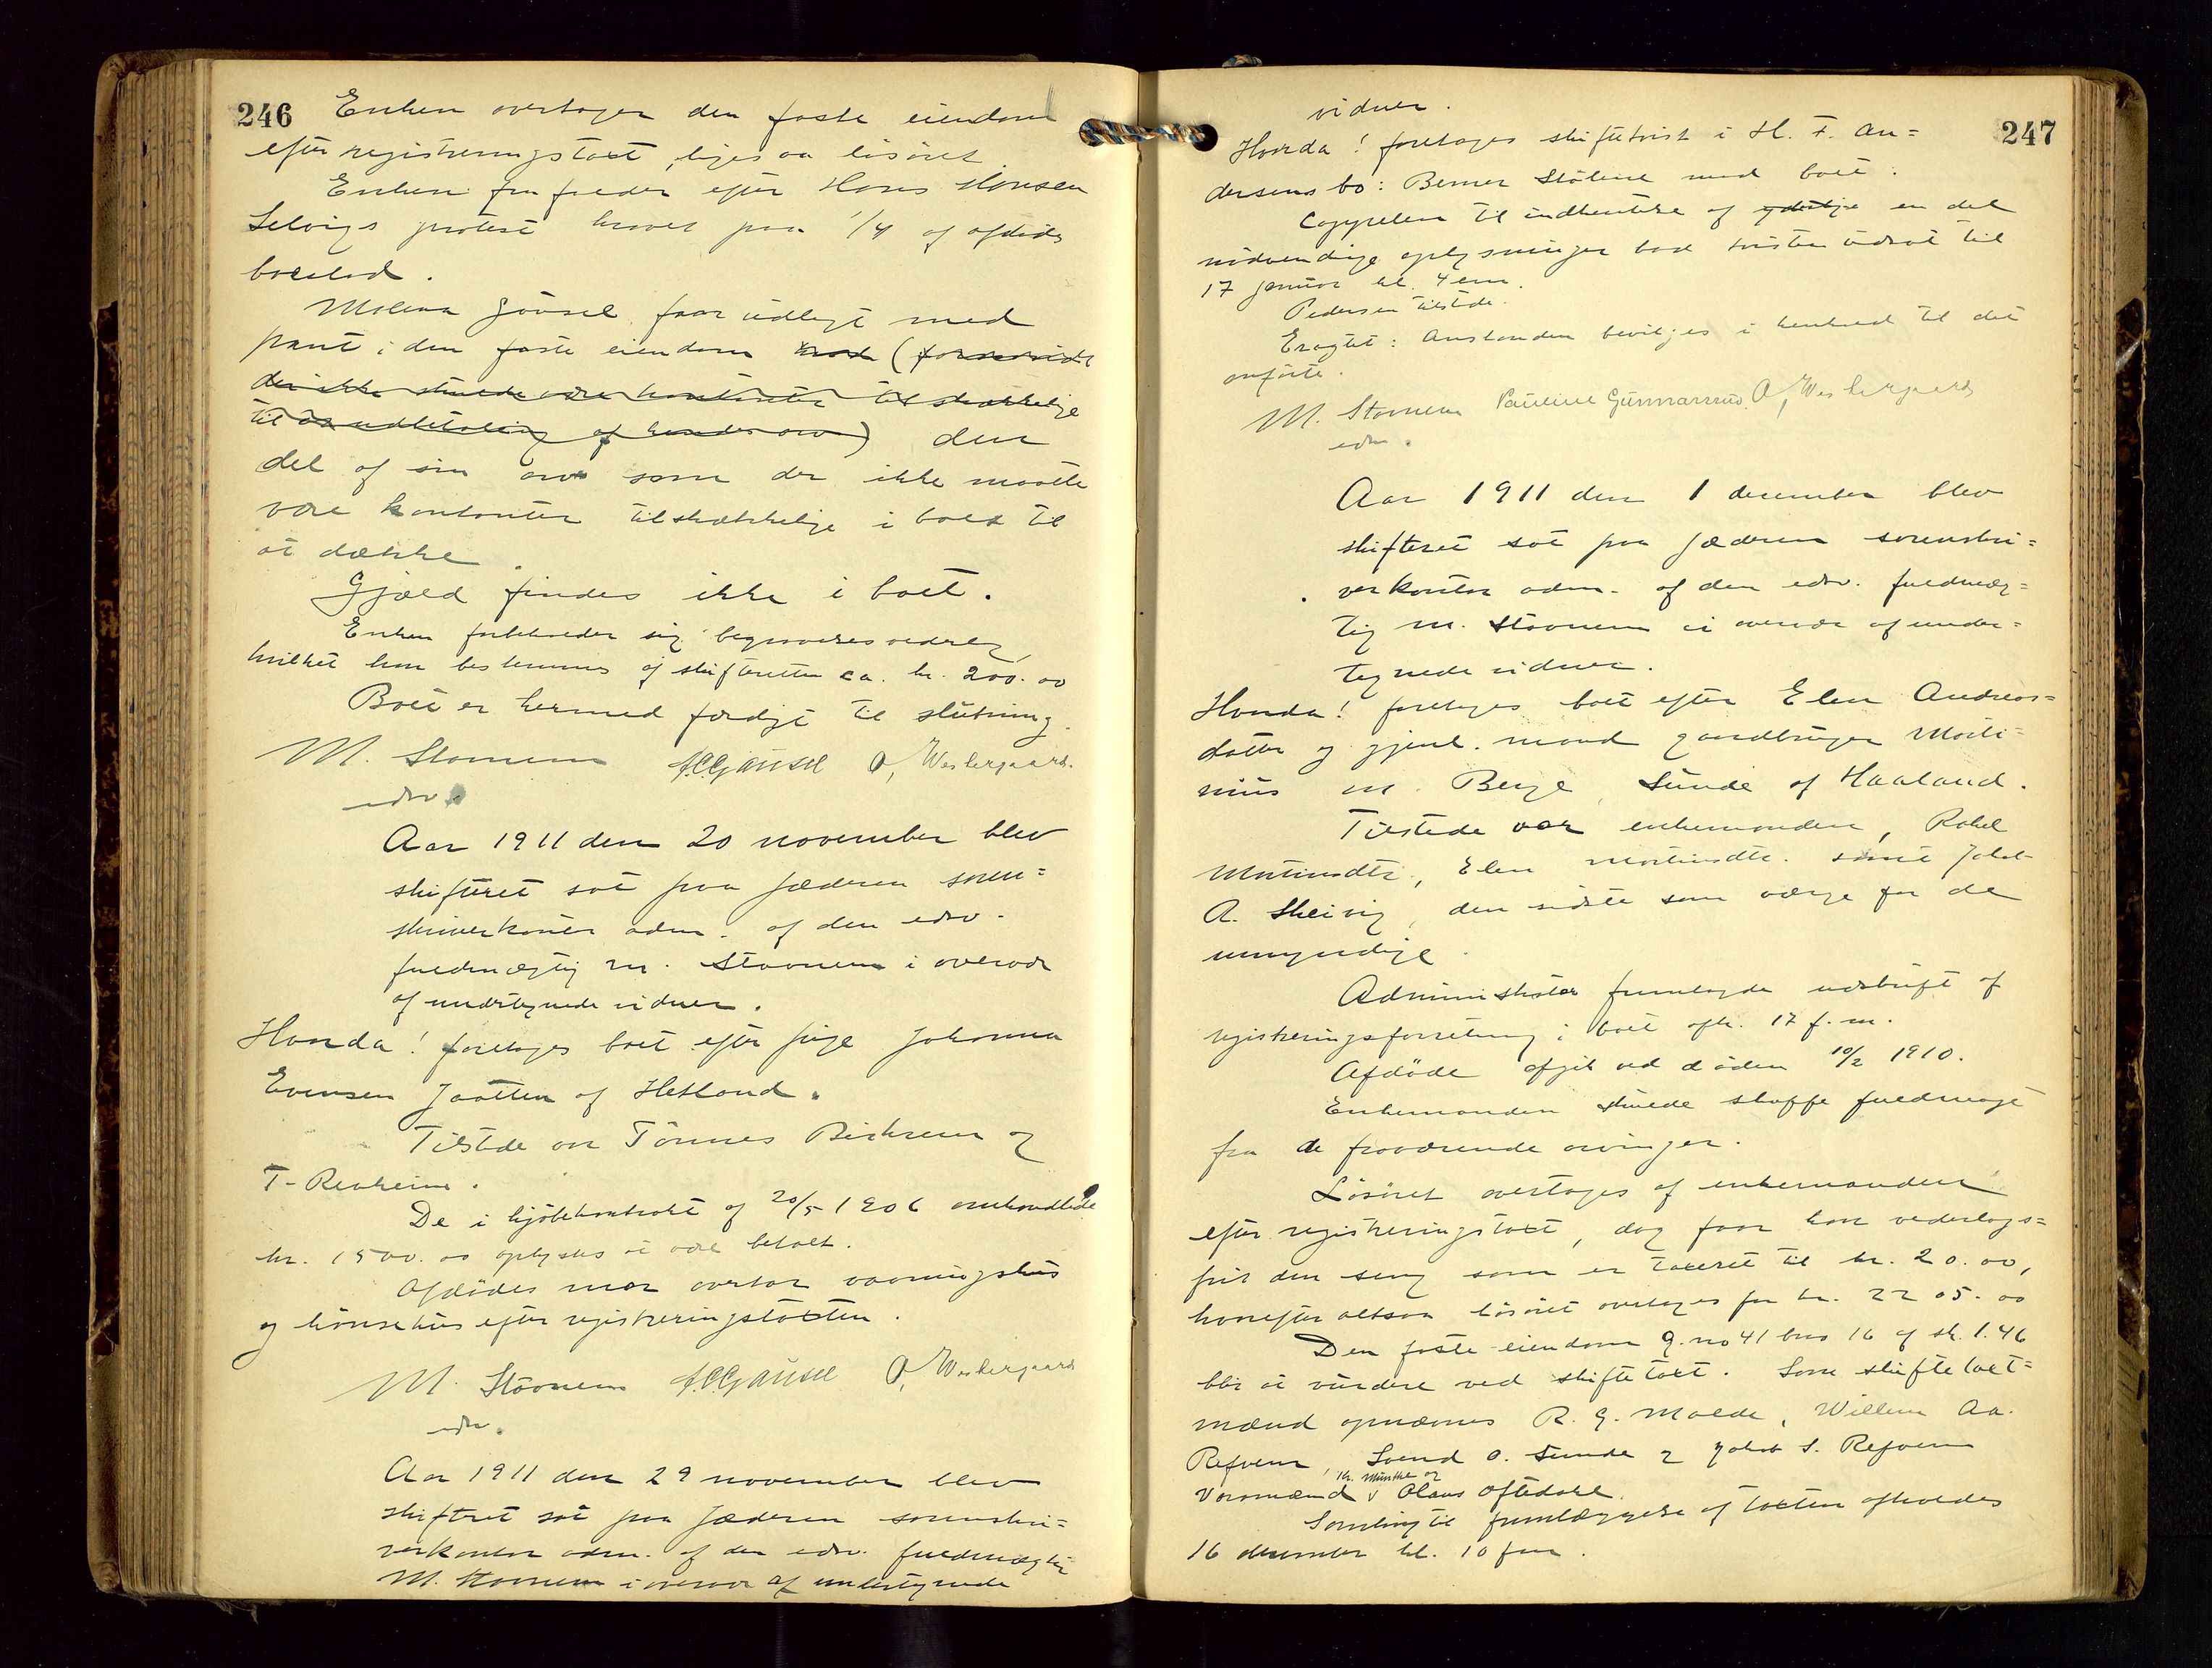 246
Enken overtager den faste eiendom
efter registreringstaxt, ligesaa løsøret
Enken fra efter Hans Hansen
Selvigs protest kravet paa 1/4 af afdødes
boeslod.
Malena Gausel faar udlagt med
pant i den faste eiendom
der ikke skulde være kontanter tilstrækkelige
til udbetaling af hendes arv) den
del af sin arv som der ikke maatte
være kontanter tilstrækkelige i boet til
at dække.
Gjæld findes ikke i boet.
Enken forbeholder sig
hvilket kan bestemmes af skifteretten ca. kr. 200.00
Boet er hermed færdigt til slutning.
M. Stornem A.C. Gausel O. Westergaard.
edsv.
Aar 1911 den 20 november blev
skifteret sat paa Jæderen soren=
skriverkontor adm. af den edsv.
fuldmægtig M. Stornem i overvær
af undertegnede vidner.
Hvorda! foretages boet efter pige Johanna
Evensen Jaatten af Hetland.
Tilstede var Tønnes Birkrem og
T. Revheim.
De i kjøbekontrakt af 20/5 1906 omhandlede
kr. 1500.00 oplystes at være betalt.
Afdødes mor overtar vaaningshus
og hønsehus efter registreringstaxten.
M. Stornem A.C. Gausel O. Westergaard
edsv.
Aar 1911 den 29 november blev
skifteret sat paa Jæderen sorenskri=
verkontor adm. af den edsv. fuldmægtig
M. Stornem i overvær af undertegnede
247
vidner.
Hvorda! foretages skiftetvist i H. F. An=
dersens bo: Berner Stølene mod boet.
Coppelen til indhentelse af yderlige en del
nødvendige oplysninger bad tvisten udsat til
17 januar kl. 4 em.
Pedersen tilstede.
Eragtet: Anstanden bevilges i henhold til det
anførte.
M. Stornem Pauline Gunnarsrud. O. Westergaard
edsv.
Aar 1911 den 1 december blev
skifteret sat paa Jæderen sorenskri=
verkontor adm. af den edsv. fuldmæg=
tig M. Stornem i overvær af under=
tegnede vidner.
Hvorda! foretages boet efter Elen Andreas=
datter og gjenl. mand gaardbruger Morti=
nius M. Berge, Sunde af Haaland.
Tilstede var enkemanden, Rakel
Martinsdtr., Elen Martinsdtr. samt Jakob
A. Skeivig, den sidste som værge for de
umyndige.
Administrator fremlagde udskrift af
registreringsforretning i boet afh. 17 f.m.
Afdøde afgik ved døden 10/2 1910.
Enkemanden skulde skaffe fuldmagt
fra de fraværende arvinger.
Løsøret overtages af enkemanden
efter registreringstaxt, dog faar han vederlags=
frit den seng som er taxeret til kr. 20.00,
hvorefter altsaa løsøret overtages for kr. 2205.00
Den faste eiendom g.no 41 bno 16 af sk. 1.46
blir at vurdere ved skiftetaxt. Som skiftetaxt=
mænd opnævnes R. G. Molde, Willem Aa.
Refvem, Svend O. Sunde og Jakob S. Refvem
Varamænd Kr. Munthe og Olaus Aftedal.
Samling til fremlæggelse af taxten afholdes
16 december kl. 10 fm.